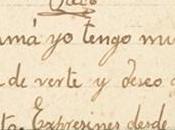 má yo tengo mu
de verte y deseo
ta Expresines desde